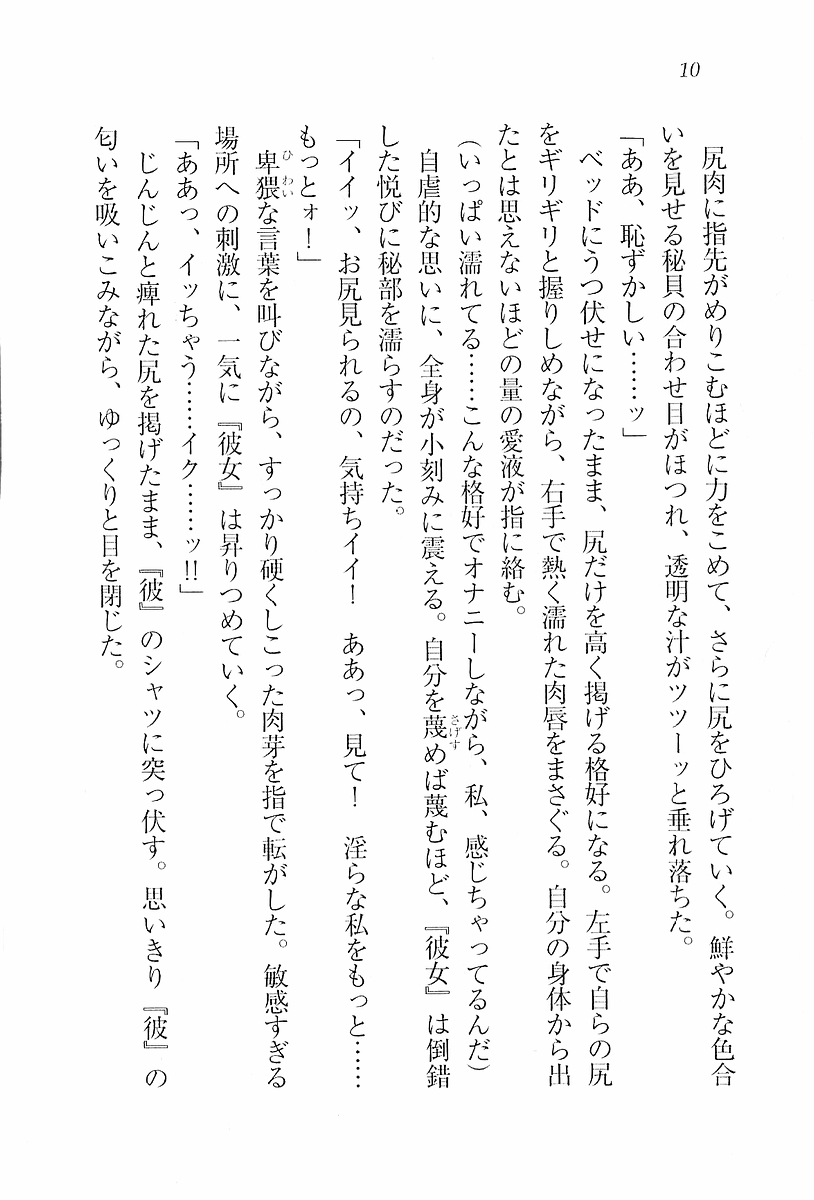 10
尻肉に指先がめりこむほどに力をこめて、さらに尻をひろげていく。鮮やかな色合
いを見せる秘貝の合わせ目がほつれ、透明な汁がツツーッと垂れ落ちた。
「ああ、恥ずかしい……ッ」
ベッドにうつ伏せになったまま、尻だけを高く掲げる格好になる。左手で自らの尻
をギリギリと握りしめながら、右手で熱く濡れた肉唇をまさぐる。自分の身体から出
たとは思えないほどの量の愛液が指に絡む。
(いっぱい濡れてる……こんな格好でオナニーしながら、私、感じちゃってるんだ)
自虐的な思いに、全身が小刻みに震える。自分を蔑めば蔑むほど、『彼女』は倒錯
した悦びに秘部を濡らすのだった。
「イイッ、お尻見られるの、気持ちイイ！　ああっ、見て！　淫らな私をもっと……
もっとォ！」
卑猥な言葉を叫びながら、すっかり硬くしこった肉芽を指で転がした。敏感すぎる
場所への刺激に、一気に『彼女』は昇りつめていく。
「ああっ、イッちゃう……イク……ッ!!」
じんじんと痺れた尻を掲げたまま、『彼』のシャツに突っ伏す。思いきり『彼』の
匂いを吸いこみながら、ゆっくりと目を閉じた。